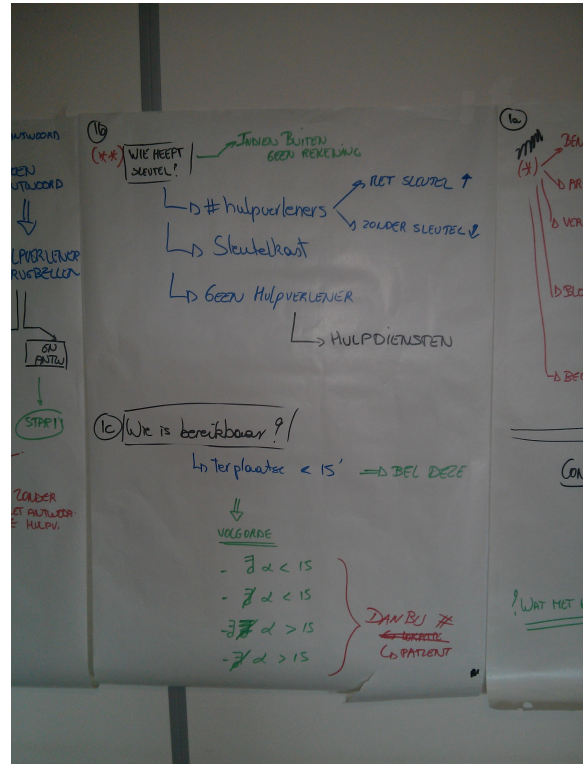 ANTWOORD
GEEN
ANTWOORD
HULPVERLENER
TERUGBELLEN
GN
ANTW
STAP 1
ZONDER
HULPV.
1b
(**) WIE HEEFT
SLEUTEL?
INDIEN BUITEN
GEEN REKENING
# hulpverleners
MET SLEUTEL ↑
ZONDER SLEUTEL ↓
Sleutelkast
GEEN HULPVERLENER
HULPDIENSTEN
1c Wie is bereikbaar?
Ter plaatse < 15' ⇒ BEL DEZE
VOLGORDE
- ∃ α < 15
- ∄ α < 15
- ∃ α > 15
- ∄ α > 15
DAN BIJ #
PATIENT
1a
(*)
BEN
AR
VER
BLO
CON
! WAT MET